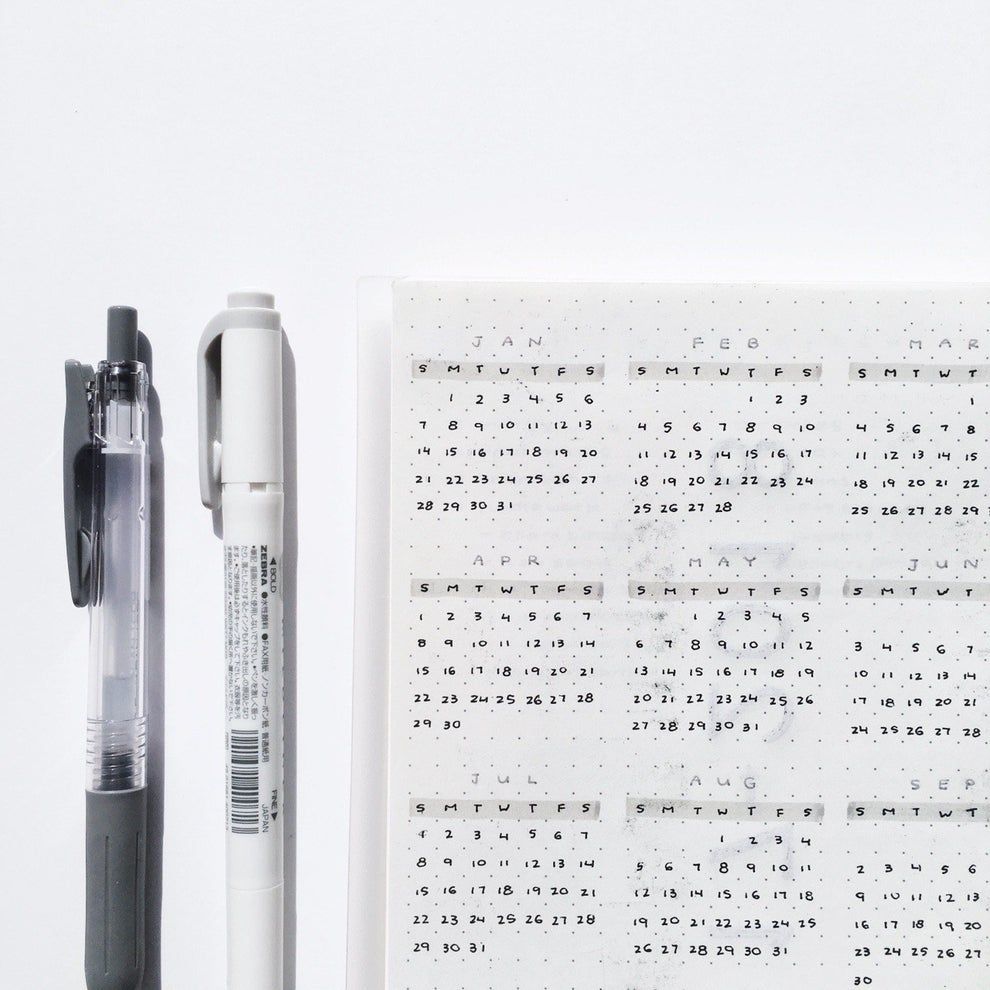 ◀BOLD
ZEBRA ●水性顔料 ●FAX用紙 ノンカーボン紙 普通紙用
FINE▶
JAPAN
JAN
S M T W T F S
1 2 3 4 5 6
7 8 9 10 11 12 13
14 15 16 17 18 19 20
21 22 23 24 25 26 27
28 29 30 31
FEB
S M T W T F S
1 2 3
4 5 6 7 8 9 10
11 12 13 14 15 16 17
18 19 20 21 22 23 24
25 26 27 28
MAR
S M T W T
1
4 5 6 7 8
11 12 13 14 15
18 19 20 21 22
25 26 27 28 29
APR
S M T W T F S
1 2 3 4 5 6 7
8 9 10 11 12 13 14
15 16 17 18 19 20 21
22 23 24 25 26 27 28
29 30
MAY
S M T W T F S
1 2 3 4 5
6 7 8 9 10 11 12
13 14 15 16 17 18 19
20 21 22 23 24 25 26
27 28 29 30 31
JUN
S M T W T
3 4 5 6 7
10 11 12 13 14
17 18 19 20 21
24 25 26 27 28
JUL
S M T W T F S
1 2 3 4 5 6 7
8 9 10 11 12 13 14
15 16 17 18 19 20 21
22 23 24 25 26 27 28
29 30 31
AUG
S M T W T F S
1 2 3 4
5 6 7 8 9 10 11
12 13 14 15 16 17 18
19 20 21 22 23 24 25
26 27 28 29 30 31
SEP
S M T W T
2 3 4 5 6
9 10 11 12 13
16 17 18 19 20
23 24 25 26 27
30